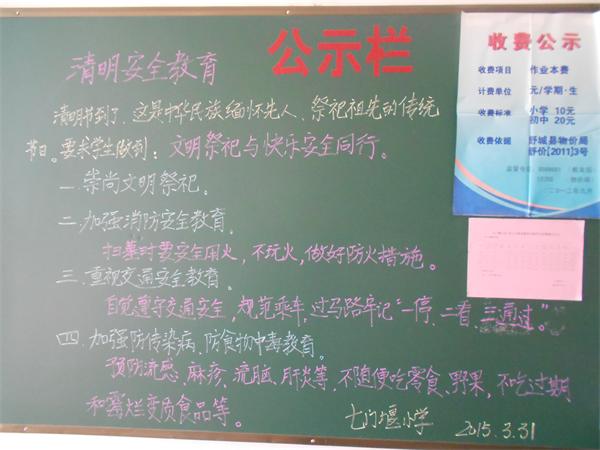 公示栏
清明安全教育
清明节到了,这是中华民族缅怀先人、祭祀祖先的传统
节日。要求学生做到:文明祭祀与快乐安全同行。
一.崇尚文明祭祀。
二.加强消防安全教育.
扫墓时要安全用火,不玩火,做好防火措施。
三.重视交通安全教育。
自觉遵守交通安全,规范乘车,过马路牢记“一停、二看、三通过。”
四.加强防传染病、防食物中毒教育。
预防流感、麻疹、流脑、肝炎等,不随便吃零食、野果,不吃过期
和霉烂变质食品等。
七门堰小学
2015.3.31
收费公示
收费项目 作业本费
计费单位 元/学期·生
收费标准 小学 10元
初中 20元
收费依据 舒城县物价局
舒价[2011]3号